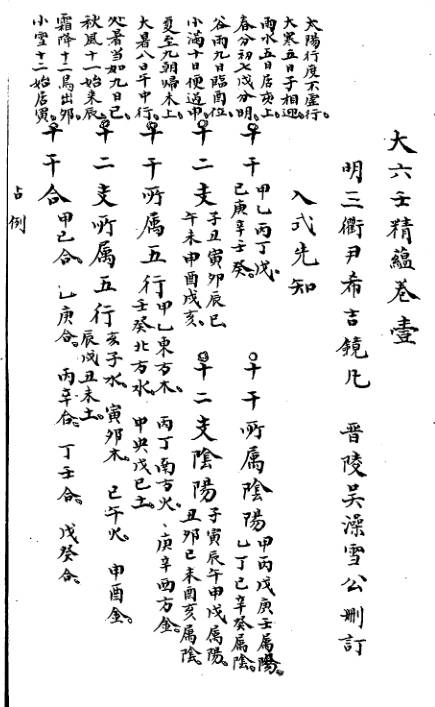 大六壬精蘊卷壹
明三衢尹希吉鏡凡 晋陵吳澡雪公刪訂
入式先知
十干 甲乙丙丁戊 己庚辛壬癸 十干所属陰陽 甲丙戊庚壬属陽 乙丁己辛癸属陰
十二支 子丑寅卯辰巳 午未申酉戌亥 十二支陰陽 子寅辰午申戌属陽 丑卯巳未酉亥属陰
十干所属五行 甲乙東方木 丙丁南方火 庚辛西方金 壬癸北方水 中央戊己土
十二支所属五行 亥子水 寅卯木 巳午火 申酉金 辰戌丑未土
十干合 甲己合 乙庚合 丙辛合 丁壬合 戊癸合
太陽行度不虛行
大寒五日子相迎
雨水五日居亥上
春分初七戌分明
谷雨九日臨酉位
小滿十日便過申
夏至九朝歸未上
大暑八日午中行
处暑当如九日巳
秋風十一始来辰
霜降十二馬出卯
小雪十二始居寅
占例